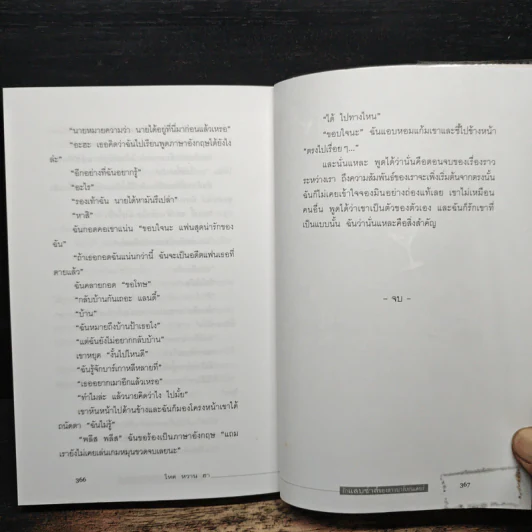 "นายหมายความว่า นายได้อยู่ที่นี่มาก่อนแล้วเหรอ"
"อะฮะ เธอคิดว่าฉันไปเรียนพูดภาษาอังกฤษได้ยังไง
ล่ะ"
"อีกอย่างที่ฉันอยากรู้"
"อะไร"
"รองเท้าฉัน นายได้หามันรึเปล่า"
"หาสิ"
ฉันกอดคอเขาแน่น "ขอบใจนะ แฟนสุดน่ารักของ
ฉัน"
"ถ้าเธอกอดฉันแน่นกว่านี้ ฉันจะเป็นอดีตแฟนเธอที่
ตายแล้ว"
ฉันคลายกอด "ขอโทษ"
"กลับบ้านกันเถอะ แลนดี้"
"บ้าน"
"ฉันหมายถึงบ้านป้าเธอไง"
"แต่ฉันยังไม่อยากกลับบ้าน"
เขาหยุด "งั้นไปไหนดี"
"ฉันรู้จักบาร์เกาหลีหลายที่"
"เธออยากเมาอีกแล้วเหรอ"
"ทำไมล่ะ แล้วนายคิดว่าไง ไปมั้ย"
เขาหันหน้าไปด้านข้างและฉันก็มองโครงหน้าเขาได้
ถนัดตา "ฉันไม่รู้"
"พลีส พลีส" ฉันขอร้องเป็นภาษาอังกฤษ "แถม
เรายังไม่เคยเล่นเกมหมุนขวดจบเลยนะ"
366
โหด หวาน ฮา
"ได้ ไปทางไหน"
"ขอบใจนะ" ฉันแอบหอมแก้มเขาและชี้ไปข้างหน้า
"ตรงไปเรื่อยๆ..."
และนั่นแหละ พูดได้ว่านั่นคือตอนจบของเรื่องราว
ระหว่างเรา ถึงความสัมพันธ์ของเราจะเพิ่งเริ่มต้นจากตรงนั้น
ฉันก็ไม่เคยเข้าใจจองมินอย่างถ่องแท้เลย เขาไม่เหมือน
คนอื่น พูดได้ว่าเขาเป็นตัวของตัวเอง และฉันก็รักเขาที่
เป็นแบบนั้น ฉันว่านั่นแหละคือสิ่งสำคัญ
- จบ -
367